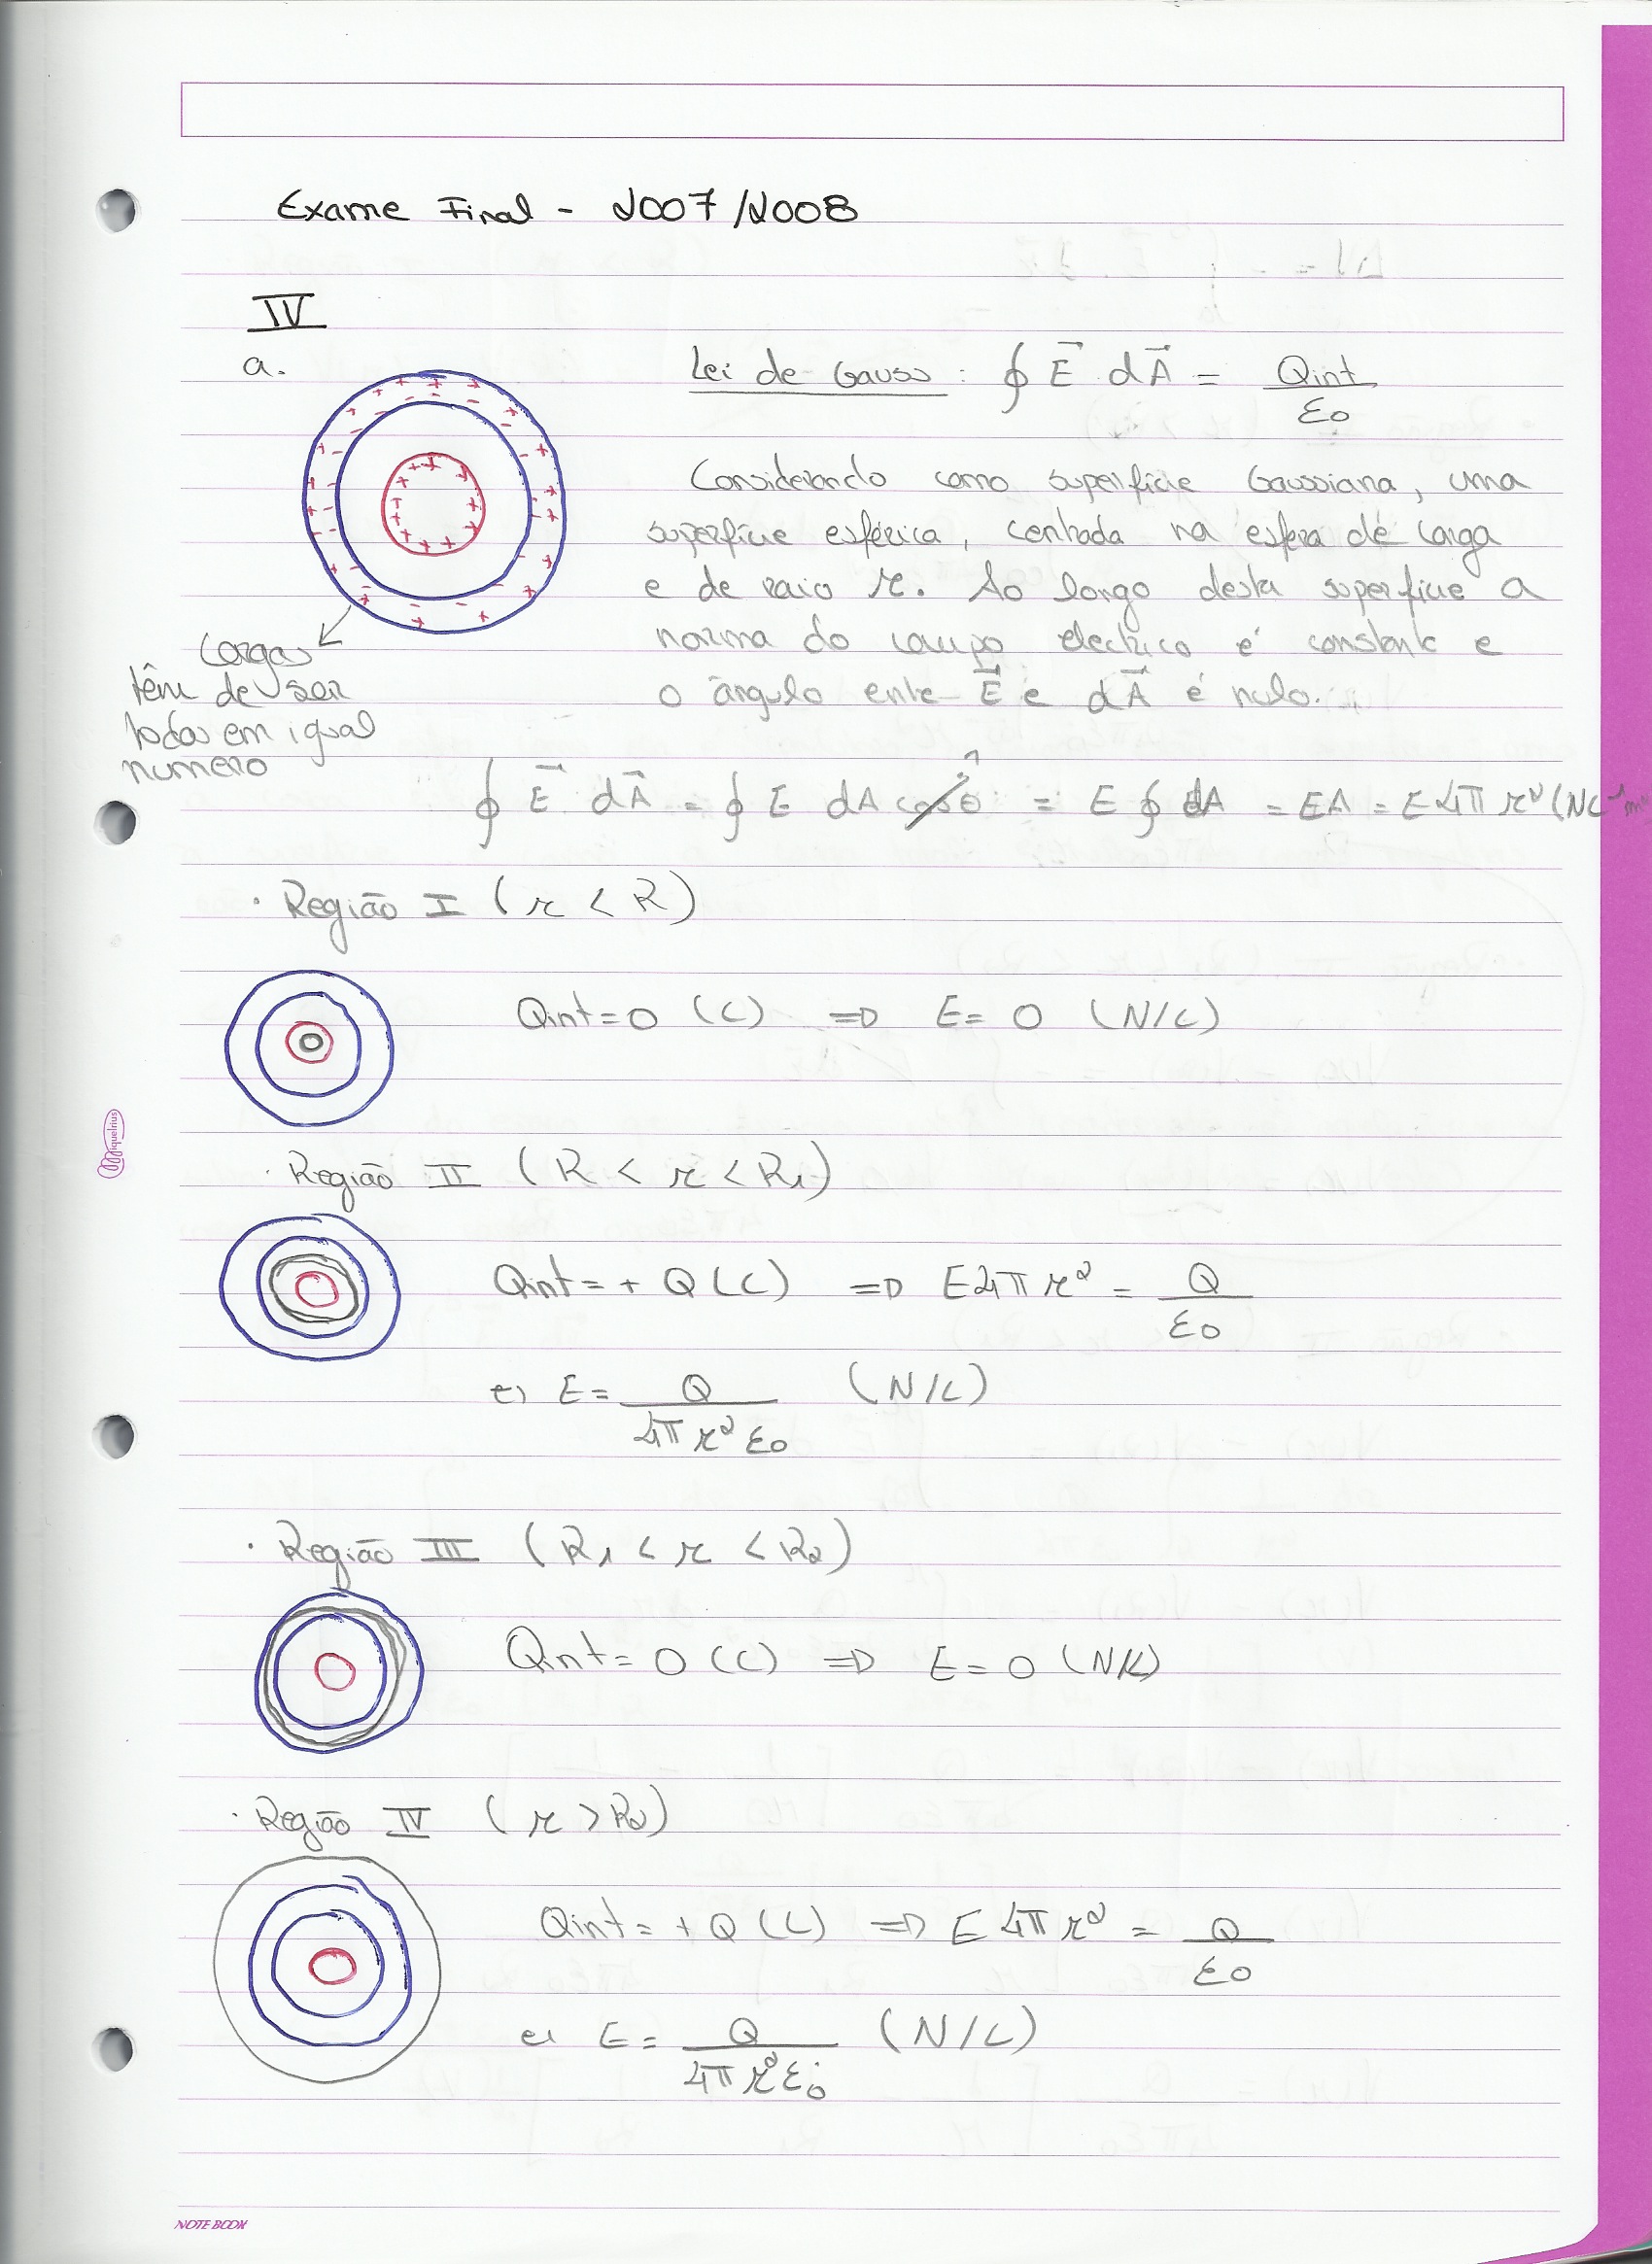 Exame Final - 2007/2008
IV
a.
Lei de Gauss: ∮ E⃗ dA⃗ = Qint / ε0
Considerando como superfície Gaussiana, uma
superfície esférica, centrada na esfera de carga
e de raio r. Ao longo desta superfície a
norma do campo electrico é constante e
o ângulo ente E⃗ e dA⃗ é nulo.
Cargas
têm de ser
todas em igual
numero
∮ E⃗ dA⃗ = ∮ E dA cosθ = E ∮ dA = EA = E4πr² (NC⁻¹m²
· Região I (r < R)
Qint = 0 (C) ⇒ E = 0 (N/C)
· Região II (R < r < R1)
Qint = + Q (C) ⇒ E4πr² = Q / ε0
E = Q / 4πr²ε0 (N/C)
· Região III (R1 < r < R2)
Qint = 0 (C) ⇒ E = 0 (N/C)
· Região IV (r > R2)
Qint = + Q (C) ⇒ E4πr² = Q / ε0
E = Q / 4πr²ε0 (N/C)
miquelrius
NOTE BOOK